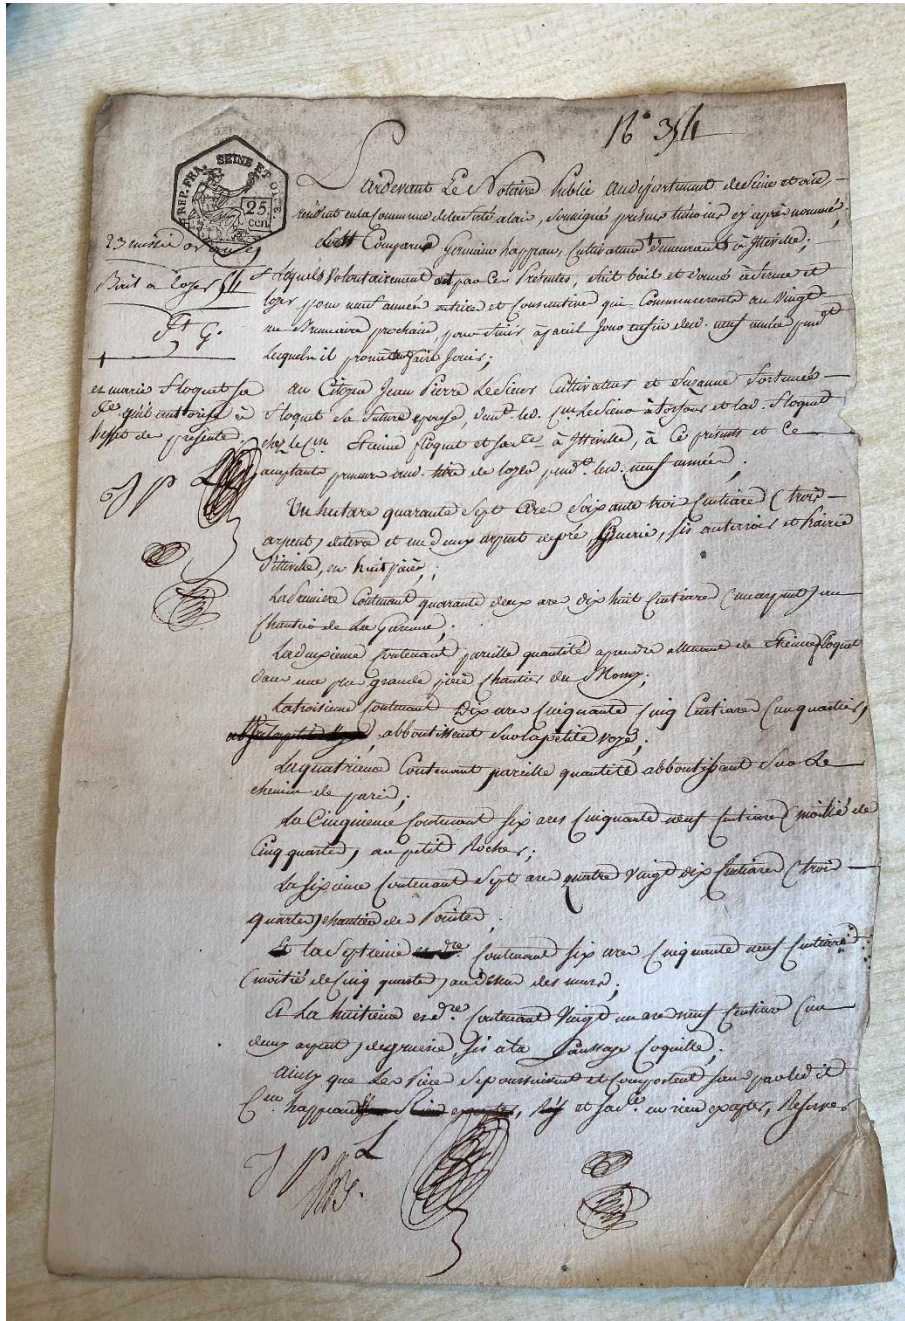 N° 354
REP. FRA. SEINE ET OISE
25 cen.
Pardevant Le Notaire Public au département de Seine et oise
résident en la Commune de la ferté alais, soussigné présens témoins cy après nommés,
Comparus Germain happeau, Cultivateur demeurant à Itteville;
Lesquels Volontairement par ces Présentes, fait bail et donné à ferme et
loyer pour neuf années entières et Consécutives qui Commenceront au Vingt
un Brumaire prochain, pour finir à pareil Jour desd. neuf années pend.t
Lesquelles il promet faire Jouir;
23
Bail à Loyer 54
et marie Floquet sa
qu'il autorise à
l'effet des présentes.
au Citoyen Jean Pierre Lesieur Cultivateur et Suzanne fortunée
Floquet sa future épouse, dem.t led. C.en Lesieur à Torfou et lad. Floquet
chez le C.en Etienne floquet et sa f.e à Itteville, à ce présents et ce
acceptants preneurs aud. titre de loyer pend.t lesd. neuf années;
J P L
Un hectare quarante Sept Ares Soixante trois Centiares (trois
arpents) de terre et un deux arpent de pré, Gruerie, sis au terroir et Prairie
d'itteville, en huit pièces;
La Première Contenant quarante deux ares dix huit Centiares (un arpent) au
Chantier de La Garenne;
La deuxième Contenant pareille quantité à prendre attenant de Etienne floquet
dans une plus grande pièce Chantier du
La troisième Contenant Dix ares Cinquante Cinq Centiares (un quartier)
abboutissant sur la petite voye;
La quatrième Contenant pareille quantité abboutissant sur Le
chemin de paris;
La Cinquième Contenant Six ares Cinquante neuf Centiares (moitié de
Cinq quartes) au petit Rocher;
La Sixième Contenant Sept ares quatre Vingt dix Centiares (trois
quartes) chantier des Pointes;
la Septième Contenant Six ares Cinquante neuf Centiares
(moitié de Cinq quartes) au dessus des murs;
Et La huitième et d.re Contenant Vingt un ares neuf Centiares (un
deux arpent) de gruerie sis à la Coquille;
Ainsy que Les Pièces Se poursuivent et Comportent sans par led.
C.en happeau et sa f.e en rien excepter, Réserver
J P L